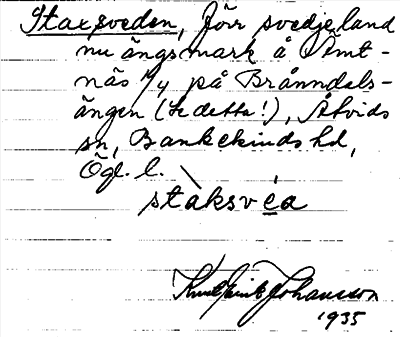 Staxsveden, förr svedjeland
nu ängsmark å Ämt-
näs 1/4 på Brånndals-
ängen (se detta!), Åtvids
sn, Bankekinds hd,
Ögl. l.
stàksvéa
Knut Erik Johansson
1935